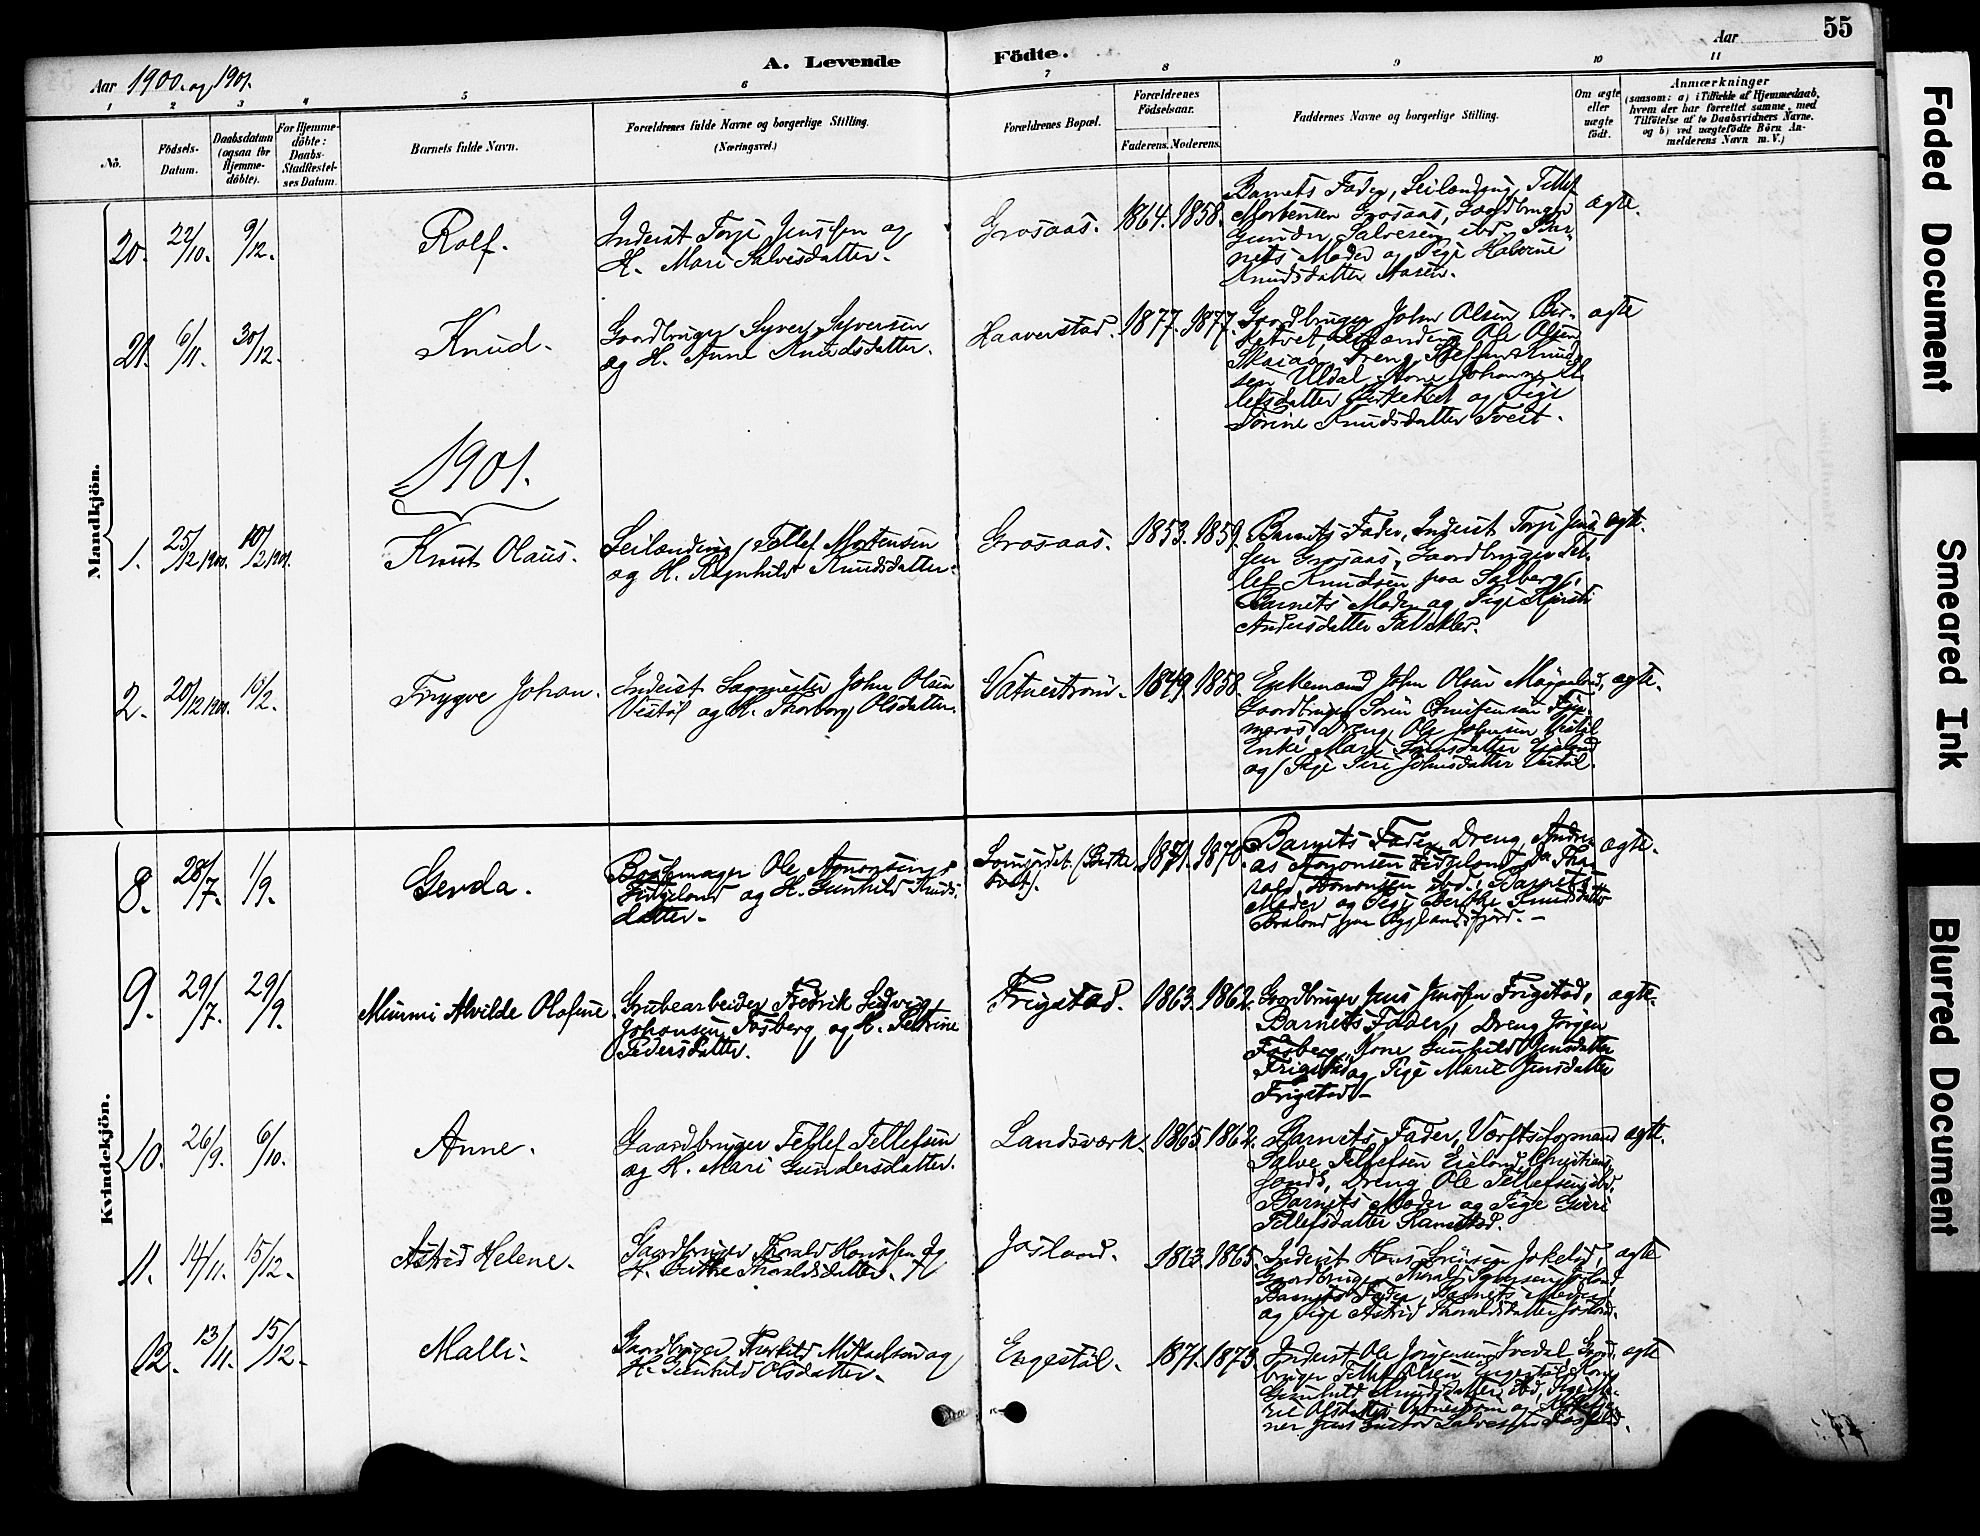 55
A. Levende Födte.
Aar 1900. og 1901.
Aar
1 2 3 4 5 6 7 8 9 10 11
No.
Födsels-
Datum.
Daabsdatum
(ogsaa for
Hjemme-
döbte).
For Hjemme-
döbte:
Daabs-
Stadfæstel-
ses Datum.
Barnets fulde Navn.
Forældrenes fulde Navne og borgerlige Stilling.
(Næringsvei.)
Forældrenes Bopæl.
Forældrenes
Födselsaar.
Faderens. Moderens.
Faddernes Navne og borgerlige Stilling.
Om ægte
eller
uægte
födt.
Anmærkninger
(saasom: a) i Tilfælde af Hjemmedaab,
hvem der har forrettet samme, med
Tilföielse af to Daabsvidners Navne.
og b) ved uægtefödte Börn An-
melderens Navn m. V.)
Mandkjön.
20. 22/10. 9/12. Rolf.
Inderst Torje Jenssen og
H. Mari Salvesdatter.
Grosaas. 1864. 1858.
Barnets Fader, Leilænding Tellef
Mortensen Grosaas, Gaardbruger
Gunder Salvesen ibd., Bar-
nets Moder og Pige
Knudsdatter Aasen.
ægte.
21. 6/11. 30/12. Knud.
Gaardbruger Syver Syversen
og H. Anne Knudsdatter.
Haaverstad. 1877. 1877.
Gaardbruger John Olsen Bir-
ketvet, Leilænding Ole Olsen
Dreng Knud-
sen Uldal, Kone Johanne
lefsdatter Birketvet og Pige
Torine Knudsdatter Tveit.
ægte
1901.
1. 25/12 1900. 10/2 1901. Knut Olaus.
Leilænding Tellef Mortensen
og H. Ragnhild Knudsdatter.
Grosaas. 1853. 1859.
Barnets Fader, Inderst Torje Jens-
sen Grosaas, Gaardbruger Tel-
lef Knudsen paa
Barnets Moder og Pige Kjersti
Andersdatter
ægte.
2. 20/12 1900. 10/2. Trygve Johan.
Inderst Sagmester John Olsen
Vestöl og H. Thorborg Olsdatter.
Vatnestrøm. 1849. 1858.
Enkemand John Olsen
Gaardbruger Sören
Dreng Ole Johnsen Vestöl
Enke Mari
og Pige Siri Johnsdatter Vestöl.
ægte.
Kvindekjön.
8. 28/7. 1/9. Gerda.
Ole Aanonsen
og H. Gunhild Knuds-
datter.
1871. 1870.
Barnets Fader, Dreng Andre-
as Aanonsen
Aanonsen ibd., Barnets
Moder og Pige Berthe Knudsdatter
ægte.
9. 29/7. 29/9. Mimmi Alvilde Olafine.
Grubearbeider Fredrik Ludvig
Johansen Fosberg og H. Petrine
Pedersdatter.
Frigstad. 1863. 1862.
Gaardbruger Jens Jenssen Frigstad,
Barnets Fader, Dreng Jörgen
Fosberg, Kone Gunhild Jensdatter
Frigstad og Pige Marie Jensdatter
Frigstad.
ægte.
10. 26/9. 6/10. Anne.
Gaardbruger Tellef Tellefsen
og H. Mari Gundersdatter.
Landsværk. 1865. 1862.
Barnets Fader, Værftsformand
Salve Tellefsen Eieland, Christians-
sand, Dreng Ole Tellefsen ibd.
Barnets Moder og Pige
Tellefsdatter
ægte.
11. 14/11. 15/12. Astrid Helene.
Gaardbruger Thorald Hanssen og
H. Berthe Thoraldsdatter.
Josland. 1865.
Inderst Hans Jokelid,
Gaardbruger
Barnets Fader, Barnets Moder
og Pige Astrid Thoraldsdatter Josland.
ægte
12. 13/11. 15/12. Malli.
Gaardbruger Therkild Mikaelsen og
H. Gunhild Olsdatter.
Engestöl. 1871. 1873.
Inderst Ole Jörgensen Gaard-
bruger Tellef Olsen Engestöl, Kone
Gunhild Knudsdatter ibd., Pige
Olsdatter Vatnestrøm og
ner Jens Gustav Salvessen
ægte
Faded Document
Smeared Ink
Blurred Document